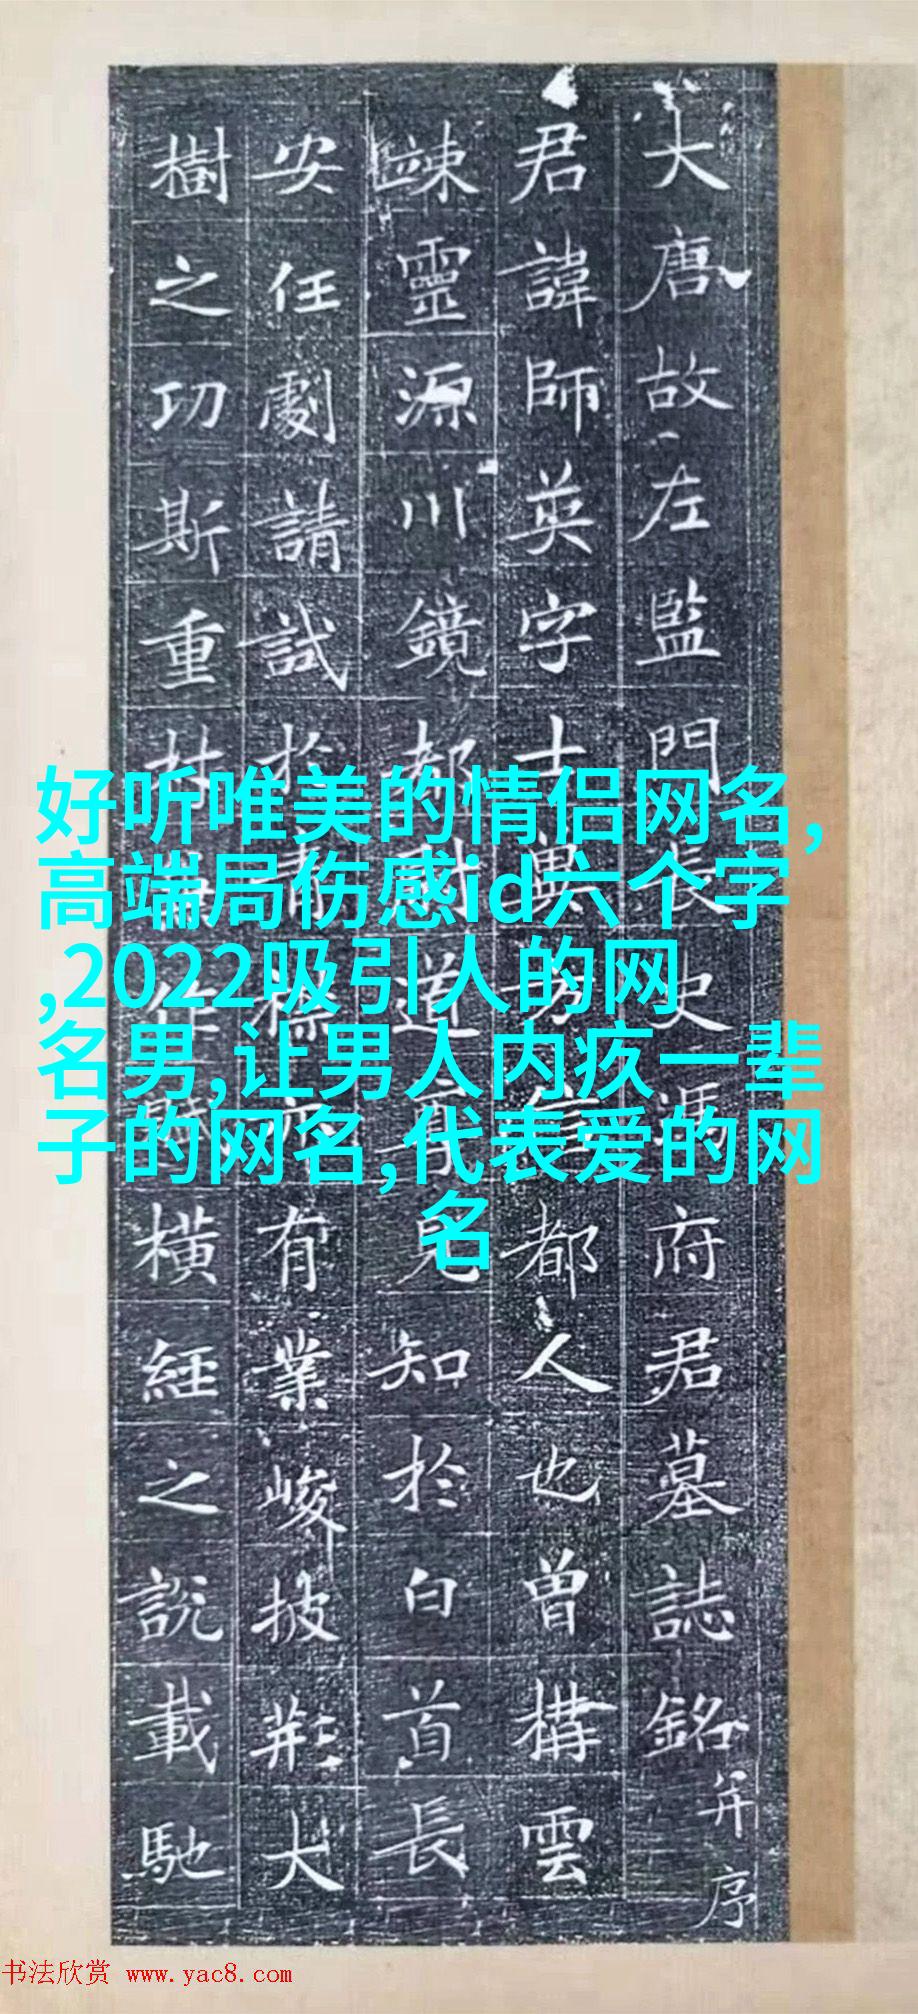 大唐故左監門長史馮府君墓誌銘并序
君諱師英字士都人也曾構雲
竦靈源川鏡都道見知於白首長
安任劇請試於有業峻披荊大
樹之功斯重作橫經之說載馳
好听唯美的情侣网名,
高端局伤感id六个字
,2022吸引人的网
名男,让男人内疚一辈
子的网名,代表爱的网
名
书法欣赏 www.yac8.com